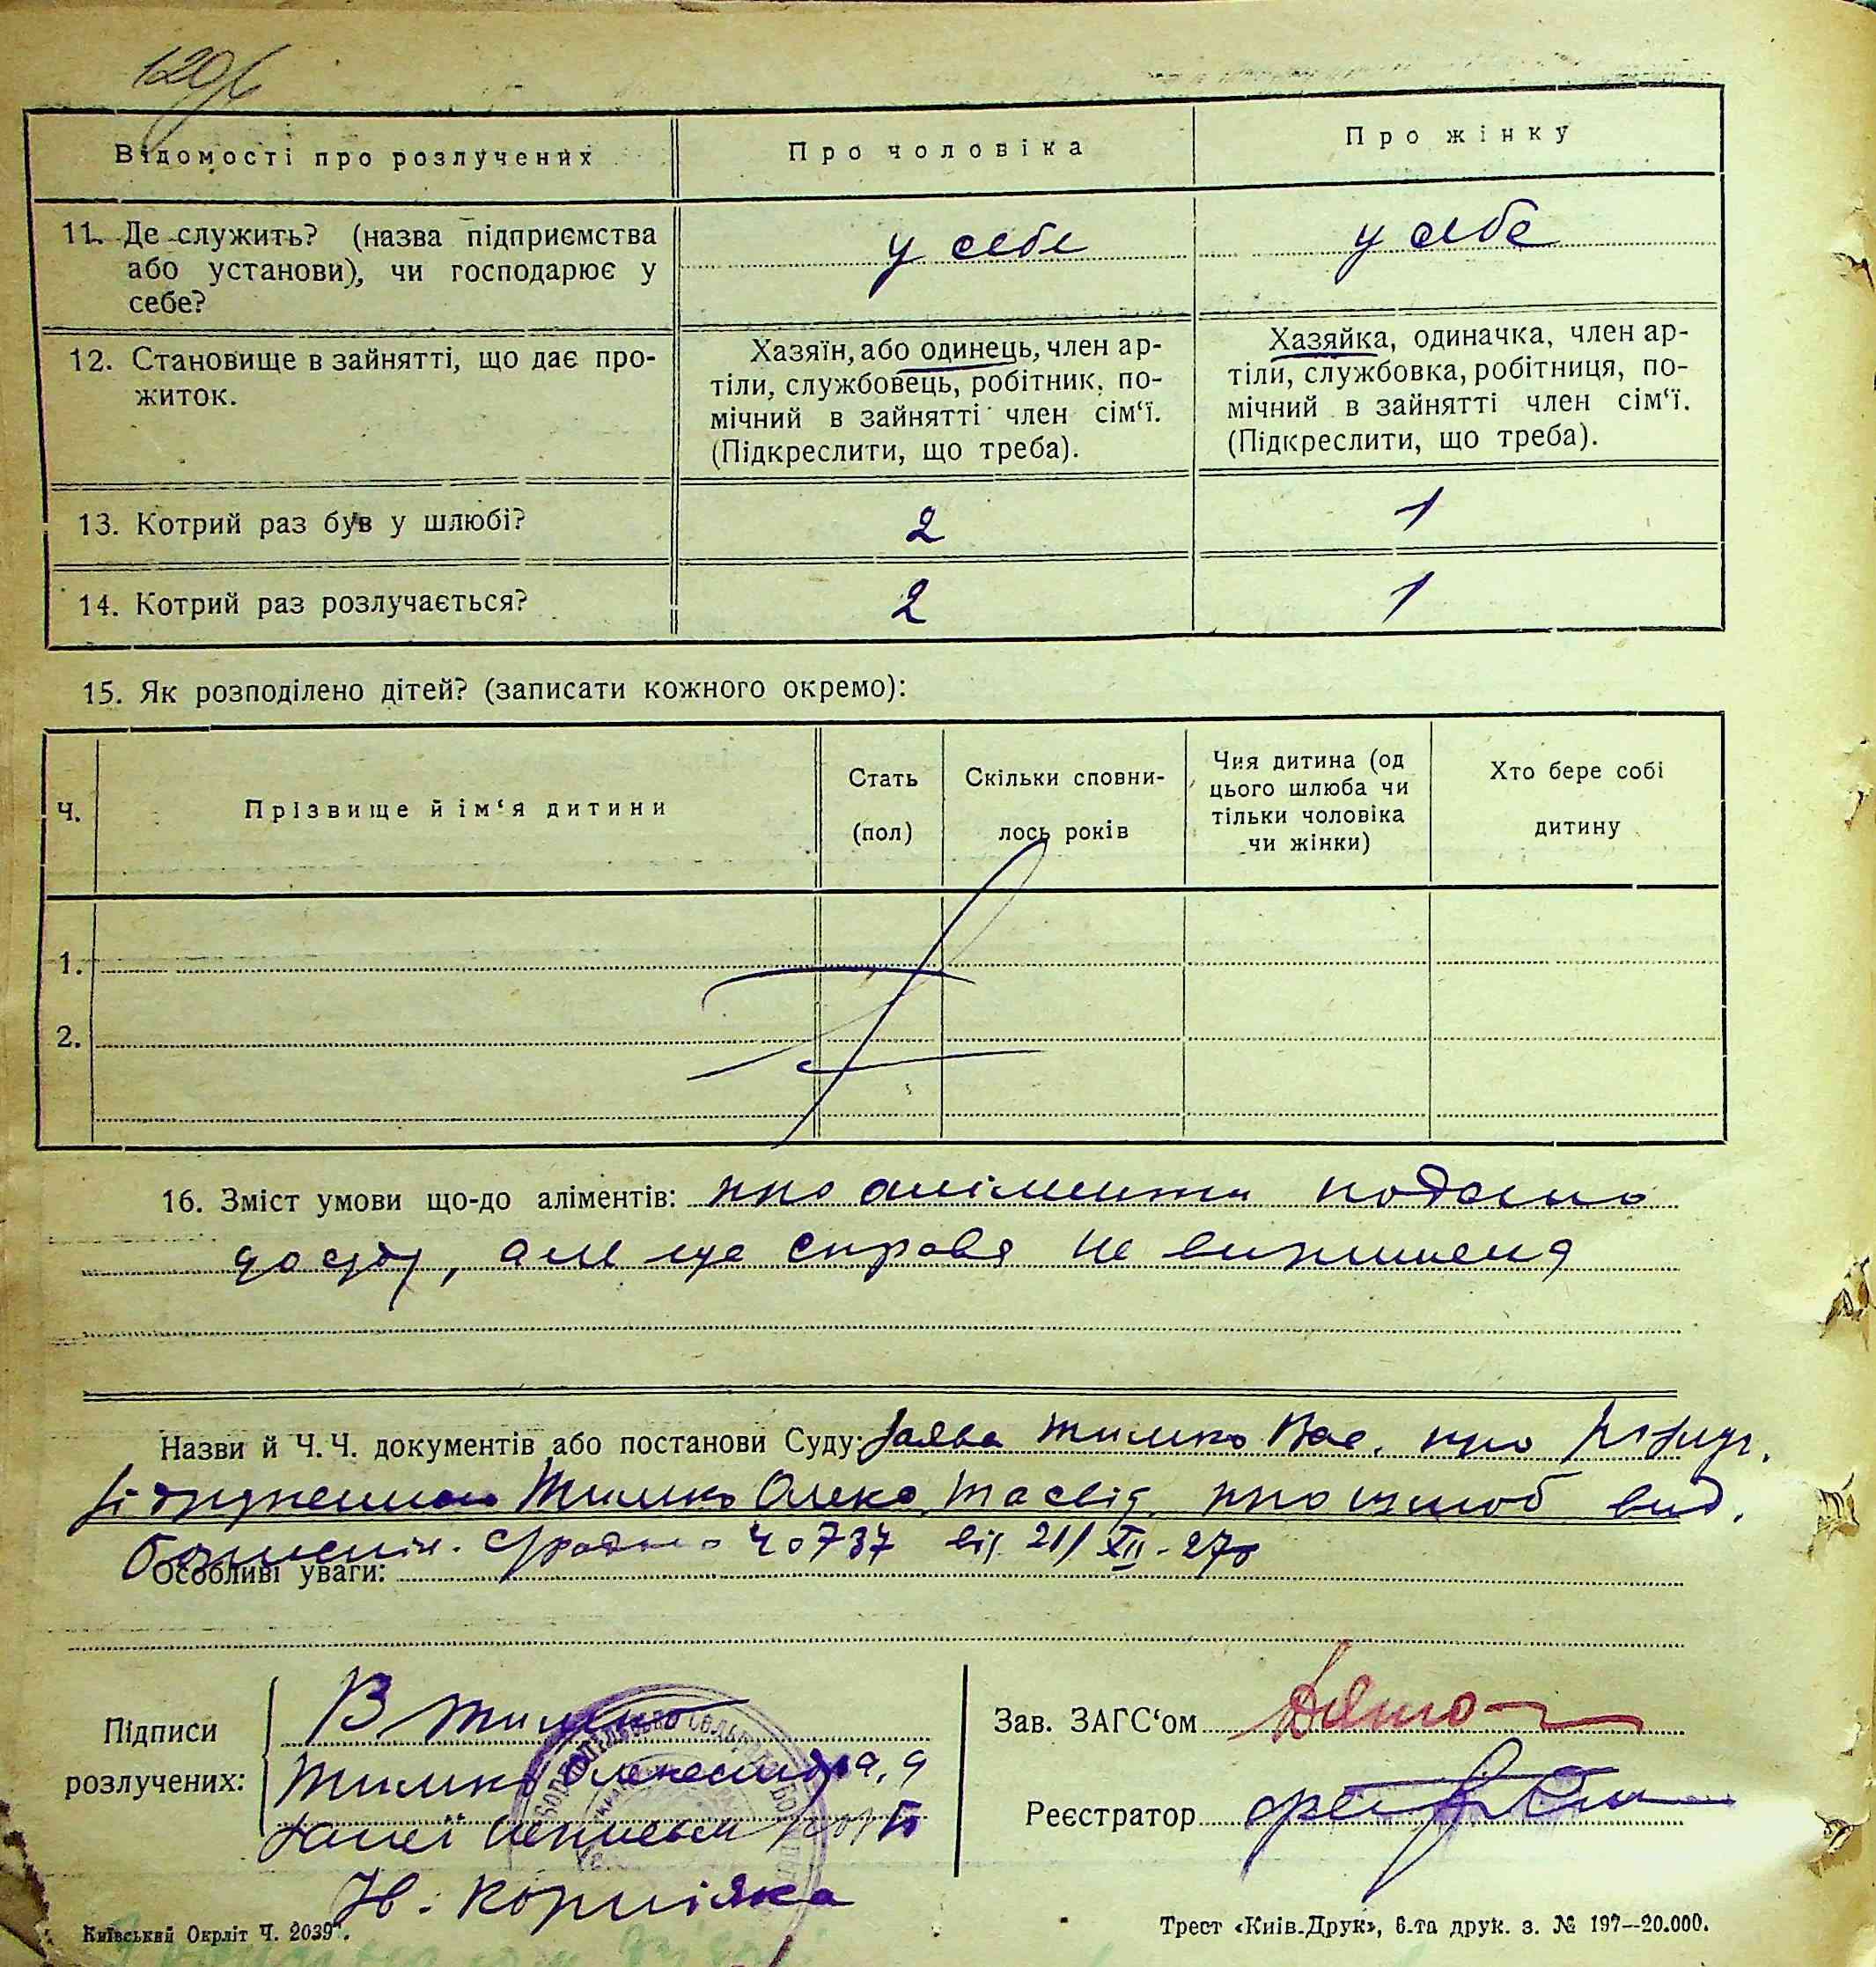 Відомості про розлучених
Про чоловіка
Про жінку
11. Де служить? (назва підприємства
або установи), чи господарює у
себе?
у себе
у себе
12. Становище в зайнятті, що дає про-
житок.
Хазяїн, або одинець, член ар-
тіли, службовець, робітник, по-
мічний в зайнятті член сім‘ї.
(Підкреслити, що треба).
Хазяйка, одиначка, член ар-
тіли, службовка, робітниця, по-
мічний в зайнятті член сім‘ї.
(Підкреслити, що треба).
13. Котрий раз був у шлюбі?
2
1
14. Котрий раз розлучається?
2
1
15. Як розподілено дітей? (записати кожного окремо):
Ч.
Прізвище й ім‘я дитини
Стать
(пол)
Скільки сповни-
лось років
Чия дитина (од
цього шлюба чи
тільки чоловіка
чи жінки)
Хто бере собі
дитину
1.
2.
16. Зміст умови що-до аліментів: про аліменти подано
до суду, але ще справа не вирішена
Назви й Ч.Ч. документів або постанови Суду: Заява Тимко Вас. про
Тимко Олекс. та свід. про шлюб вид.
737 від 21/XII-27
Особливі уваги:
Підписи
розлучених:
В Тимко
Тимко Олександра, а
Н. Корніяка
Зав. ЗАГС‘ом
Реєстратор
Київський Окрліт Ч. 2039.
Трест «Київ-Друк», 6-та друк. з. № 197—20.000.